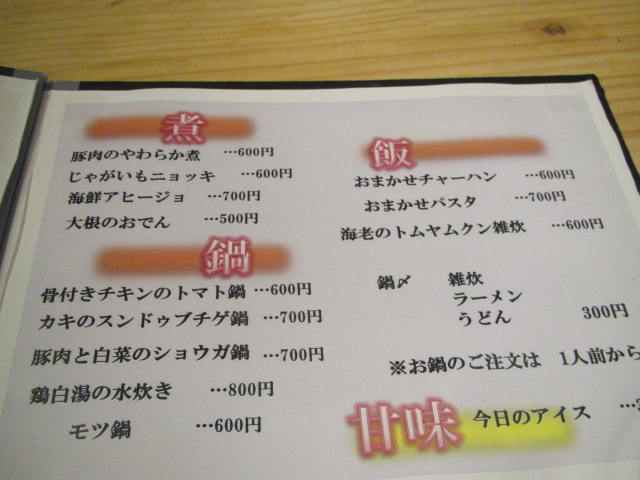 煮
豚肉のやわらか煮 …600円
じゃがいもニョッキ …600円
海鮮アヒージョ …700円
大根のおでん …500円
鍋
骨付きチキンのトマト鍋 …600円
カキのスンドゥブチゲ鍋 …700円
豚肉と白菜のショウガ鍋 …700円
鶏白湯の水炊き …800円
モツ鍋 …600円
飯
おまかせチャーハン …600円
おまかせパスタ …700円
海老のトムヤムクン雑炊 …600円
鍋〆 雑炊
ラーメン
うどん 300円
※お鍋のご注文は 1人前から
甘味
今日のアイス …